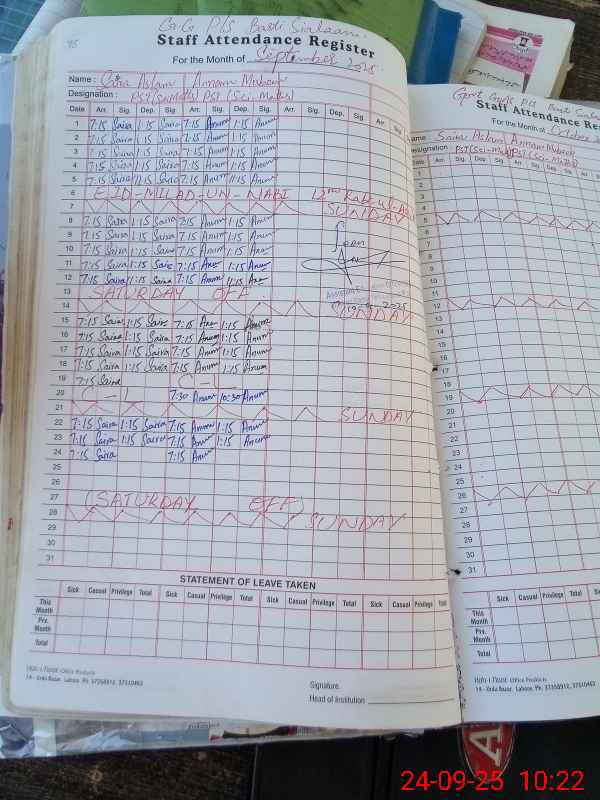 95
G.G P/S Basti Sialaam.
Staff Attendance Register
For the Month of September 2025.
Name: Saira Aslam | Annam Mubeen
Designation: PST (Sci-Math) PST (Sci-Maths)
Date Arr. Sig. Dep. Sig. Arr. Sig. Dep. Sig. Arr. Sig. Dep. Sig. Arr. Sig.
1 7:15 Saira 1:15 Saira 7:15 Anum 1:15 Anum
2 7:15 Saira 1:15 Saira 7:15 Anum 1:15 Anum
3 7:15 Saira 1:15 Saira 7:15 Anum 1:15 Anum
4 7:15 Saira 1:15 Saira 7:15 Anum 1:15 Anum
5 7:15 Saira 1:15 Saira 7:15 Anum 1:15 Anum
6 EID-MILAD-UN-NABI 12
7 SUNDAY
8 7:15 Saira 1:15 Saira 7:15 Anum 1:15 Anum
9 7:15 Saira 1:15 Saira 7:15 Anum 1:15 Anum
10 7:15 Saira 1:15 Saira 7:15 Anum 1:15 Anum
11 7:15 Saira 1:15 Saira 7:15 Anum 1:15 Anum
12 7:15 Saira 1:15 Saira 7:15 Anum 1:15 Anum
13 SATURDAY OFF
14 SUNDAY
15 7:15 Saira 1:15 Saira 7:15 Anum 1:15 Anum
16 7:15 Saira 1:15 Saira 7:15 Anum 1:15 Anum
17 7:15 Saira 1:15 Saira 7:15 Anum 1:15 Anum
18 7:15 Saira 1:15 Saira 7:15 Anum 1:15 Anum
19 7:15 Saira C - L
20 C - L 7:30 Anum 10:30 Anum
21 SUNDAY
22 7:15 Saira 1:15 Saira 7:15 Anum 1:15 Anum
23 7:15 Saira 1:15 Saira 7:15 Anum 1:15 Anum
24 7:15 Saira 7:15 Anum
25
26
27 (SATURDAY OFF)
28 SUNDAY
29
30
31
STATEMENT OF LEAVE TAKEN
Sick Casual Privilege Total Sick Casual Privilege Total Sick Casual Privilege Total Sick Casual
This Month
Prv. Month
Total
High-Class Office Products
14 - Urdu Bazar, Lahore. Ph: 37358912, 37310463
Signature.
Head of Institution
Govt Girls P/S Basti
Staff Attendance
For the Month of October
Name: Saira Aslam Annam Mubeen
Designation PST (Sci-Math) PST (Sci-Maths)
Date Arr. Sig. Dep. Sig. Arr. Sig.
1
2
3
4
5
6
7
8
9
10
11
12
13
14
15
16
17
18
19
20
21
22
23
24
25
26
27
28
29
30
31
STATEMENT
Sick Casual Privilege Total Sick Casual Privilege
This Month
Prv. Month
Total
High-Class Office Products
14 - Urdu Bazar, Lahore. Ph: 37358912, 37310463
24-09-25 10:22